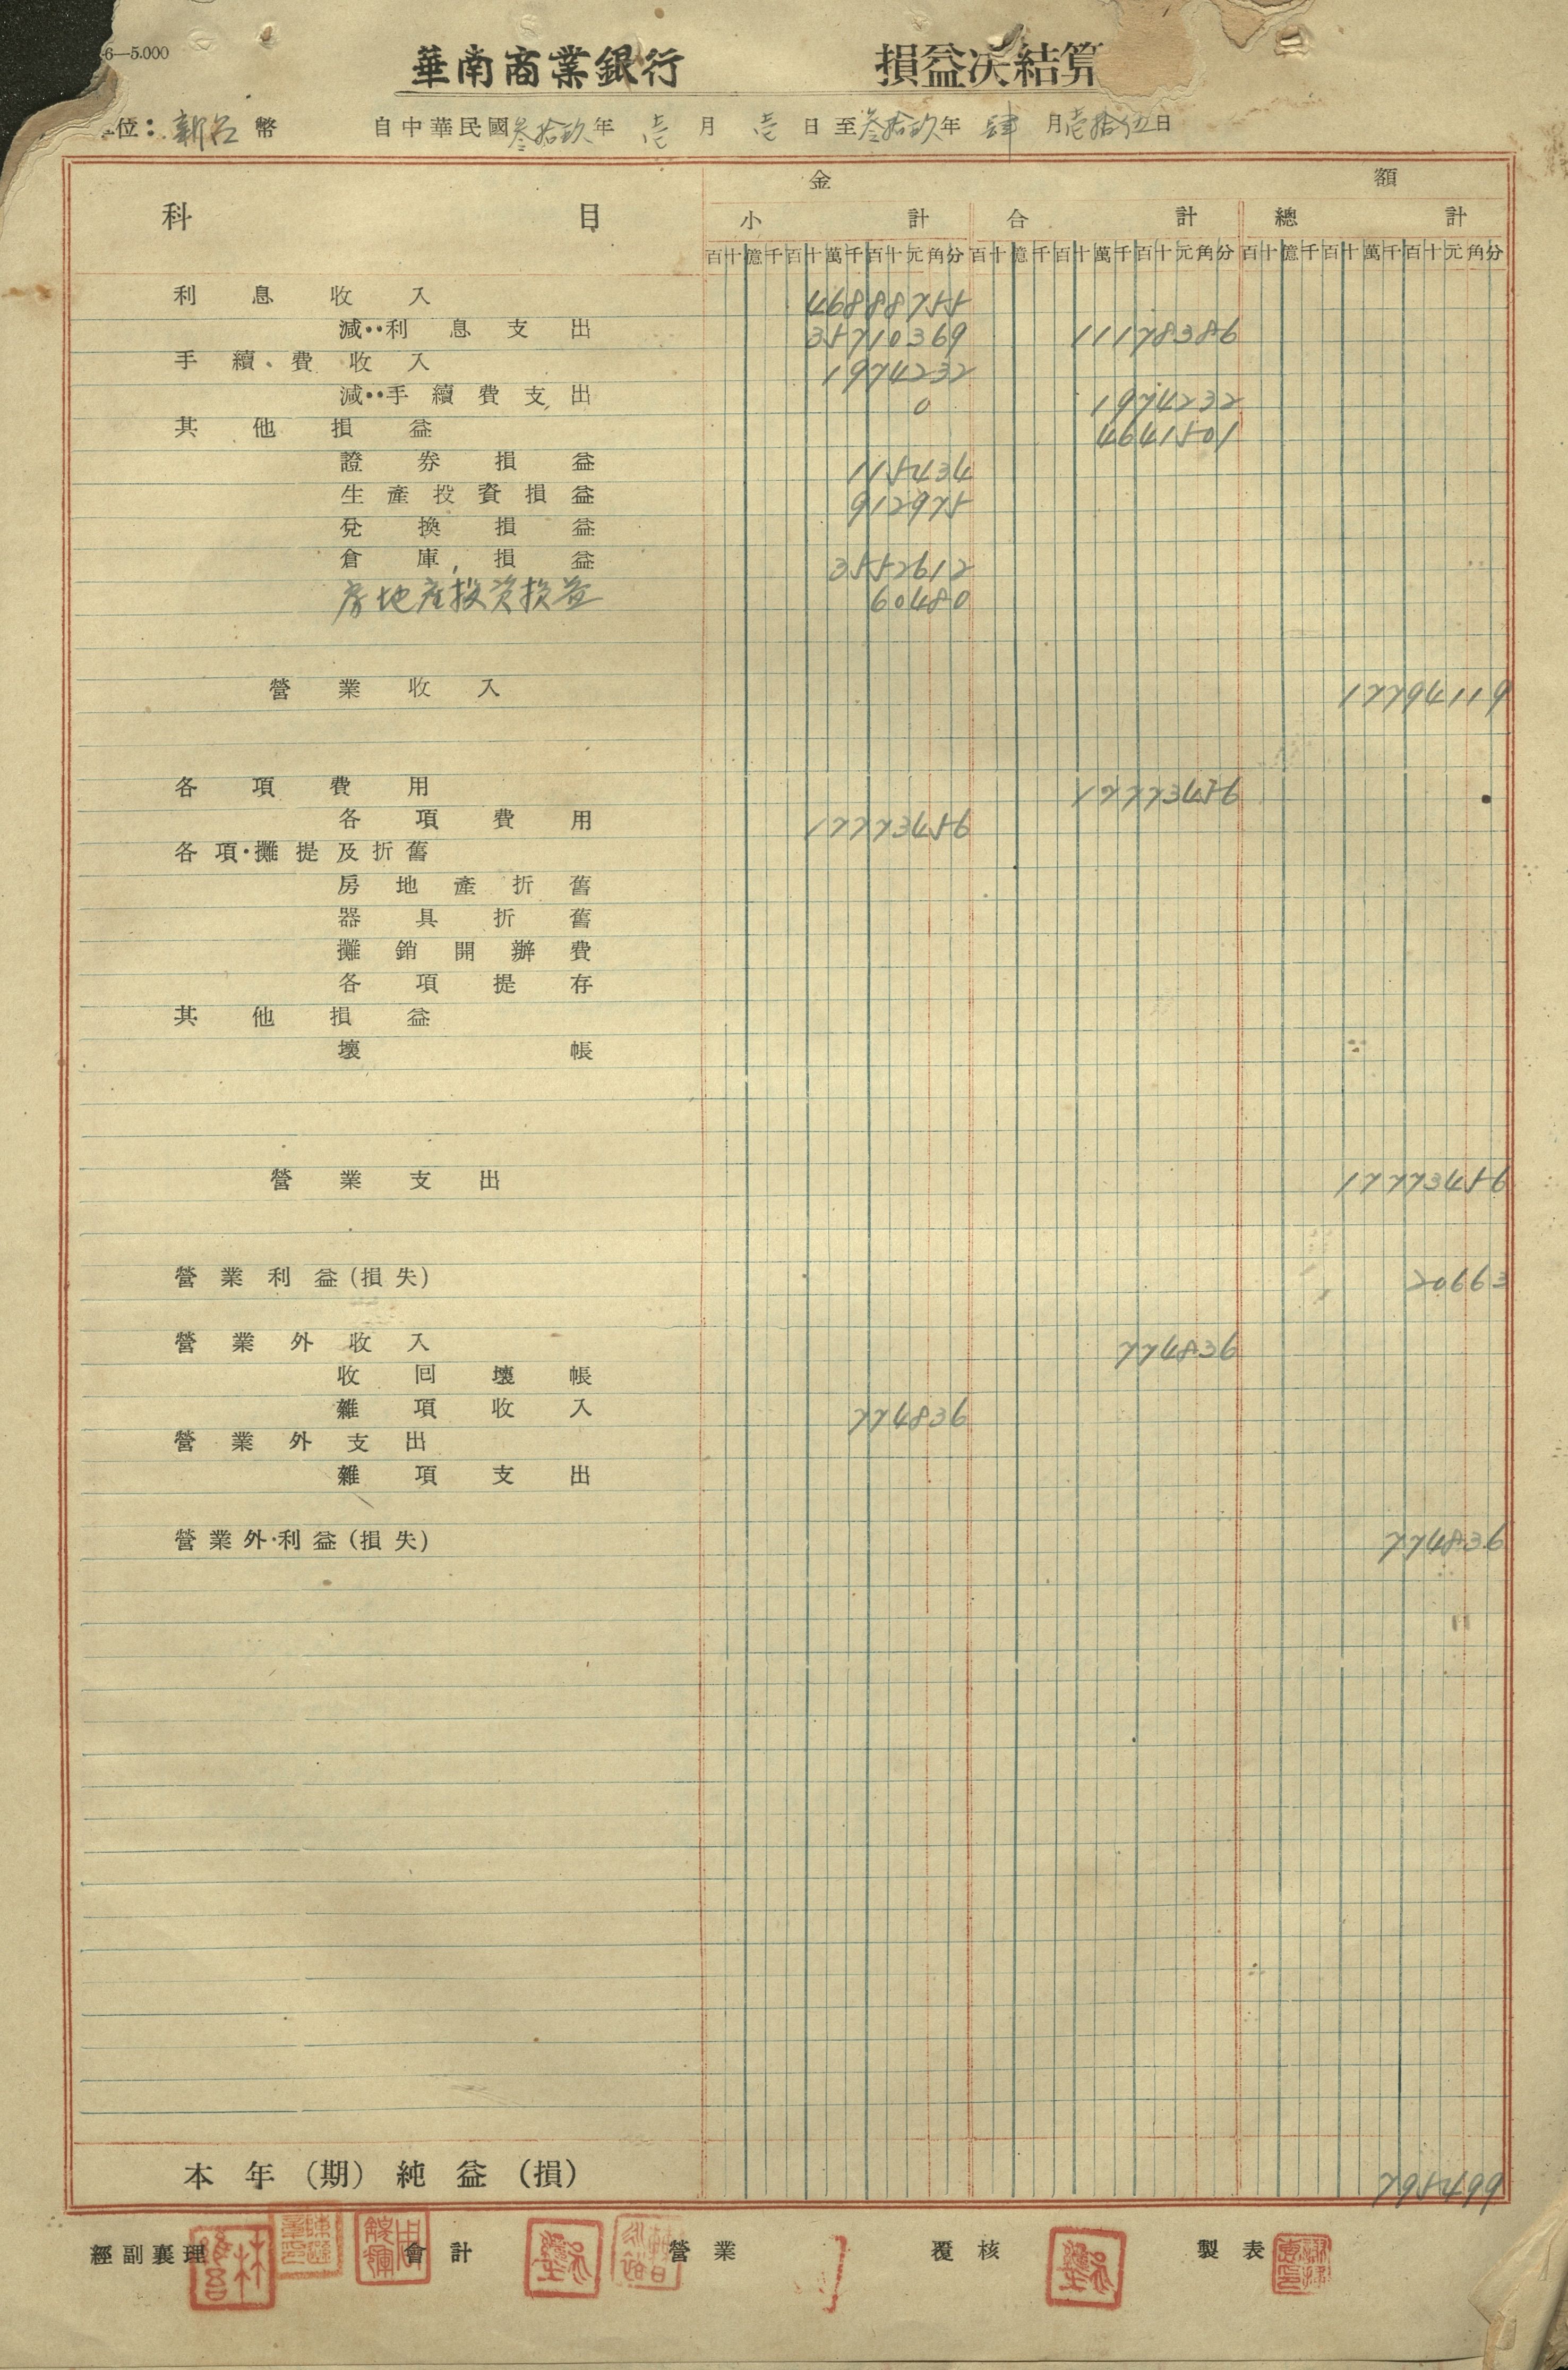 6—5.000
華南商業銀行 損益決結算
位：新台幣 自中華民國叁拾玖年壹月壹日至叁拾玖年肆月壹拾伍日
金額
科目 小計 合計 總計
百十億千百十萬千百十元角分 百十億千百十萬千百十元角分 百十億千百十萬千百十元角分
利息收入 46888755
減‥利息支出 35710369 11178386
手續費收入 1974232
減‥手續費支出 0 1974232
其他損益 4641501
證券損益 115434
生產投資損益 912975
兌換損益
倉庫損益 3552612
房地產投資損益 60480
營業收入 17794119
各項費用 17773456
各項費用 17773456
各項攤提及折舊
房地產折舊
器具折舊
攤銷開辦費
各項提存
其他損益
壞帳
營業支出 17773456
營業利益(損失) 20663
營業外收入 774836
收回壞帳
雜項收入 774836
營業外支出
雜項支出
營業外利益(損失) 774836
本年(期)純益(損) 795499
經副襄理 會計 營業 覆核 製表